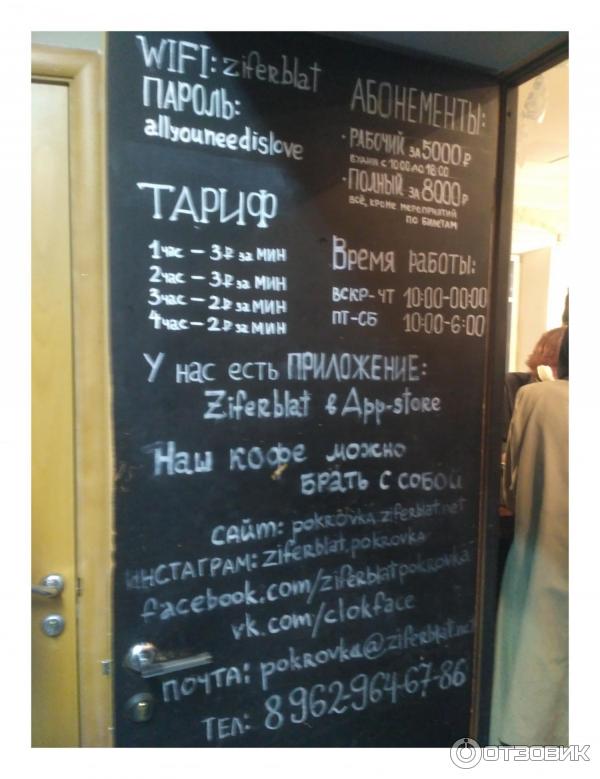 WIFI: ziferblat
ПАРОЛЬ:
allyouneedislove
АБОНЕМЕНТЫ:
· РАБОЧИЙ ЗА 5000₽
БУДНИ С 10:00 ДО 18:00
· ПОЛНЫЙ ЗА 8000₽
ВСЁ, КРОМЕ МЕРОПРИЯТИЙ
ПО БИЛЕТАМ
ТАРИФ
1 час – 3₽ за МИН
2 час – 3₽ за МИН
3 час – 2₽ за МИН
4 час – 2₽ за МИН
Время работы:
ВСКР-ЧТ 10:00-00:00
ПТ-СБ 10:00-6:00
У нас есть ПРИЛОЖЕНИЕ:
Ziferblat в App-store
Наш кофе можно
БРАТЬ С СОБОЙ
САЙТ: pokrovka.ziferblat.net
ИНСТАГРАМ: ziferblat.pokrovka
facebook.com/ziferblatpokrovka
vk.com/clokface
ПОЧТА: pokrovka@ziferblat.net
ТЕЛ: 8 962-964-67-86
ОТЗОВИК